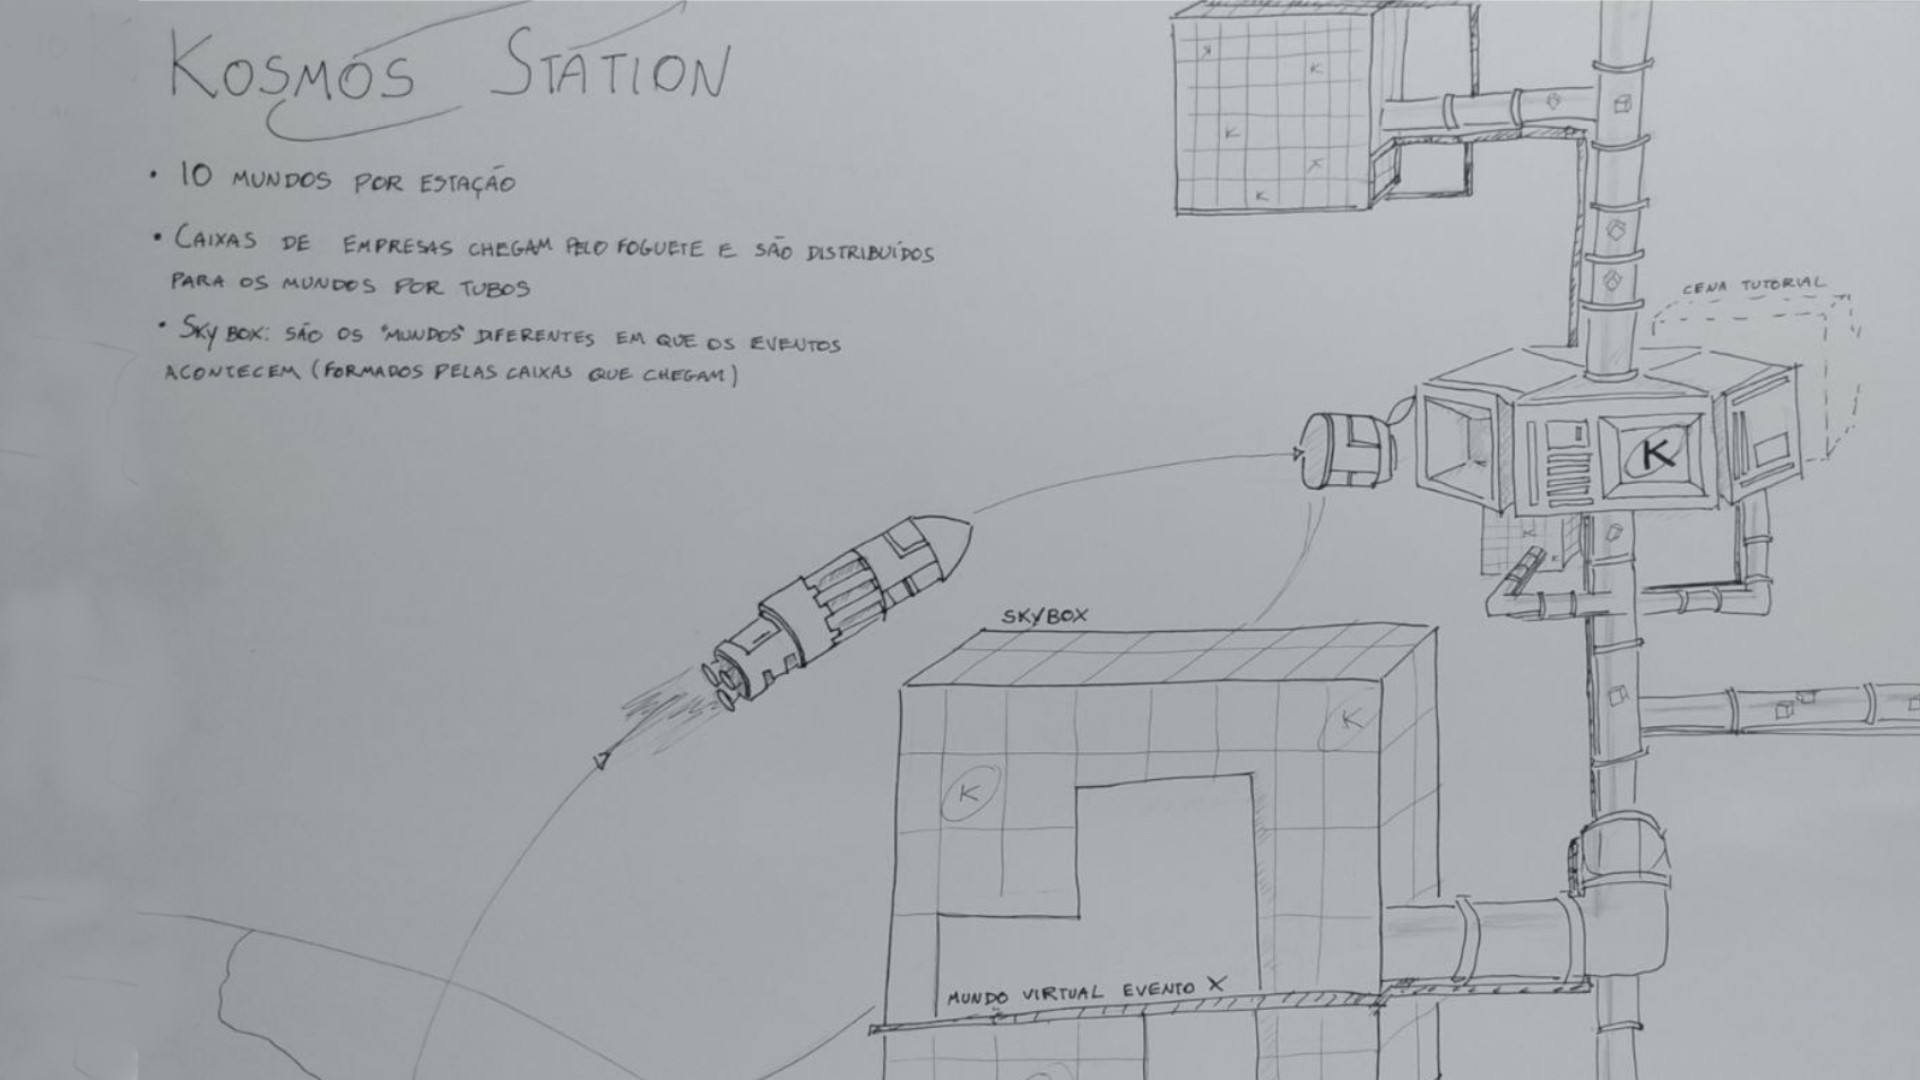 KOSMOS STATION
• 10 MUNDOS POR ESTAÇÃO
• CAIXAS DE EMPRESAS CHEGAM PELO FOGUETE E SÃO DISTRIBUÍDOS
PARA OS MUNDOS POR TUBOS
• SKY BOX: SÃO OS "MUNDOS" DIFERENTES EM QUE OS EVENTOS
ACONTECEM (FORMADOS PELAS CAIXAS QUE CHEGAM)
K
K
K
K
CENA TUTORIAL
K
K
SKYBOX
K
K
MUNDO VIRTUAL EVENTO X